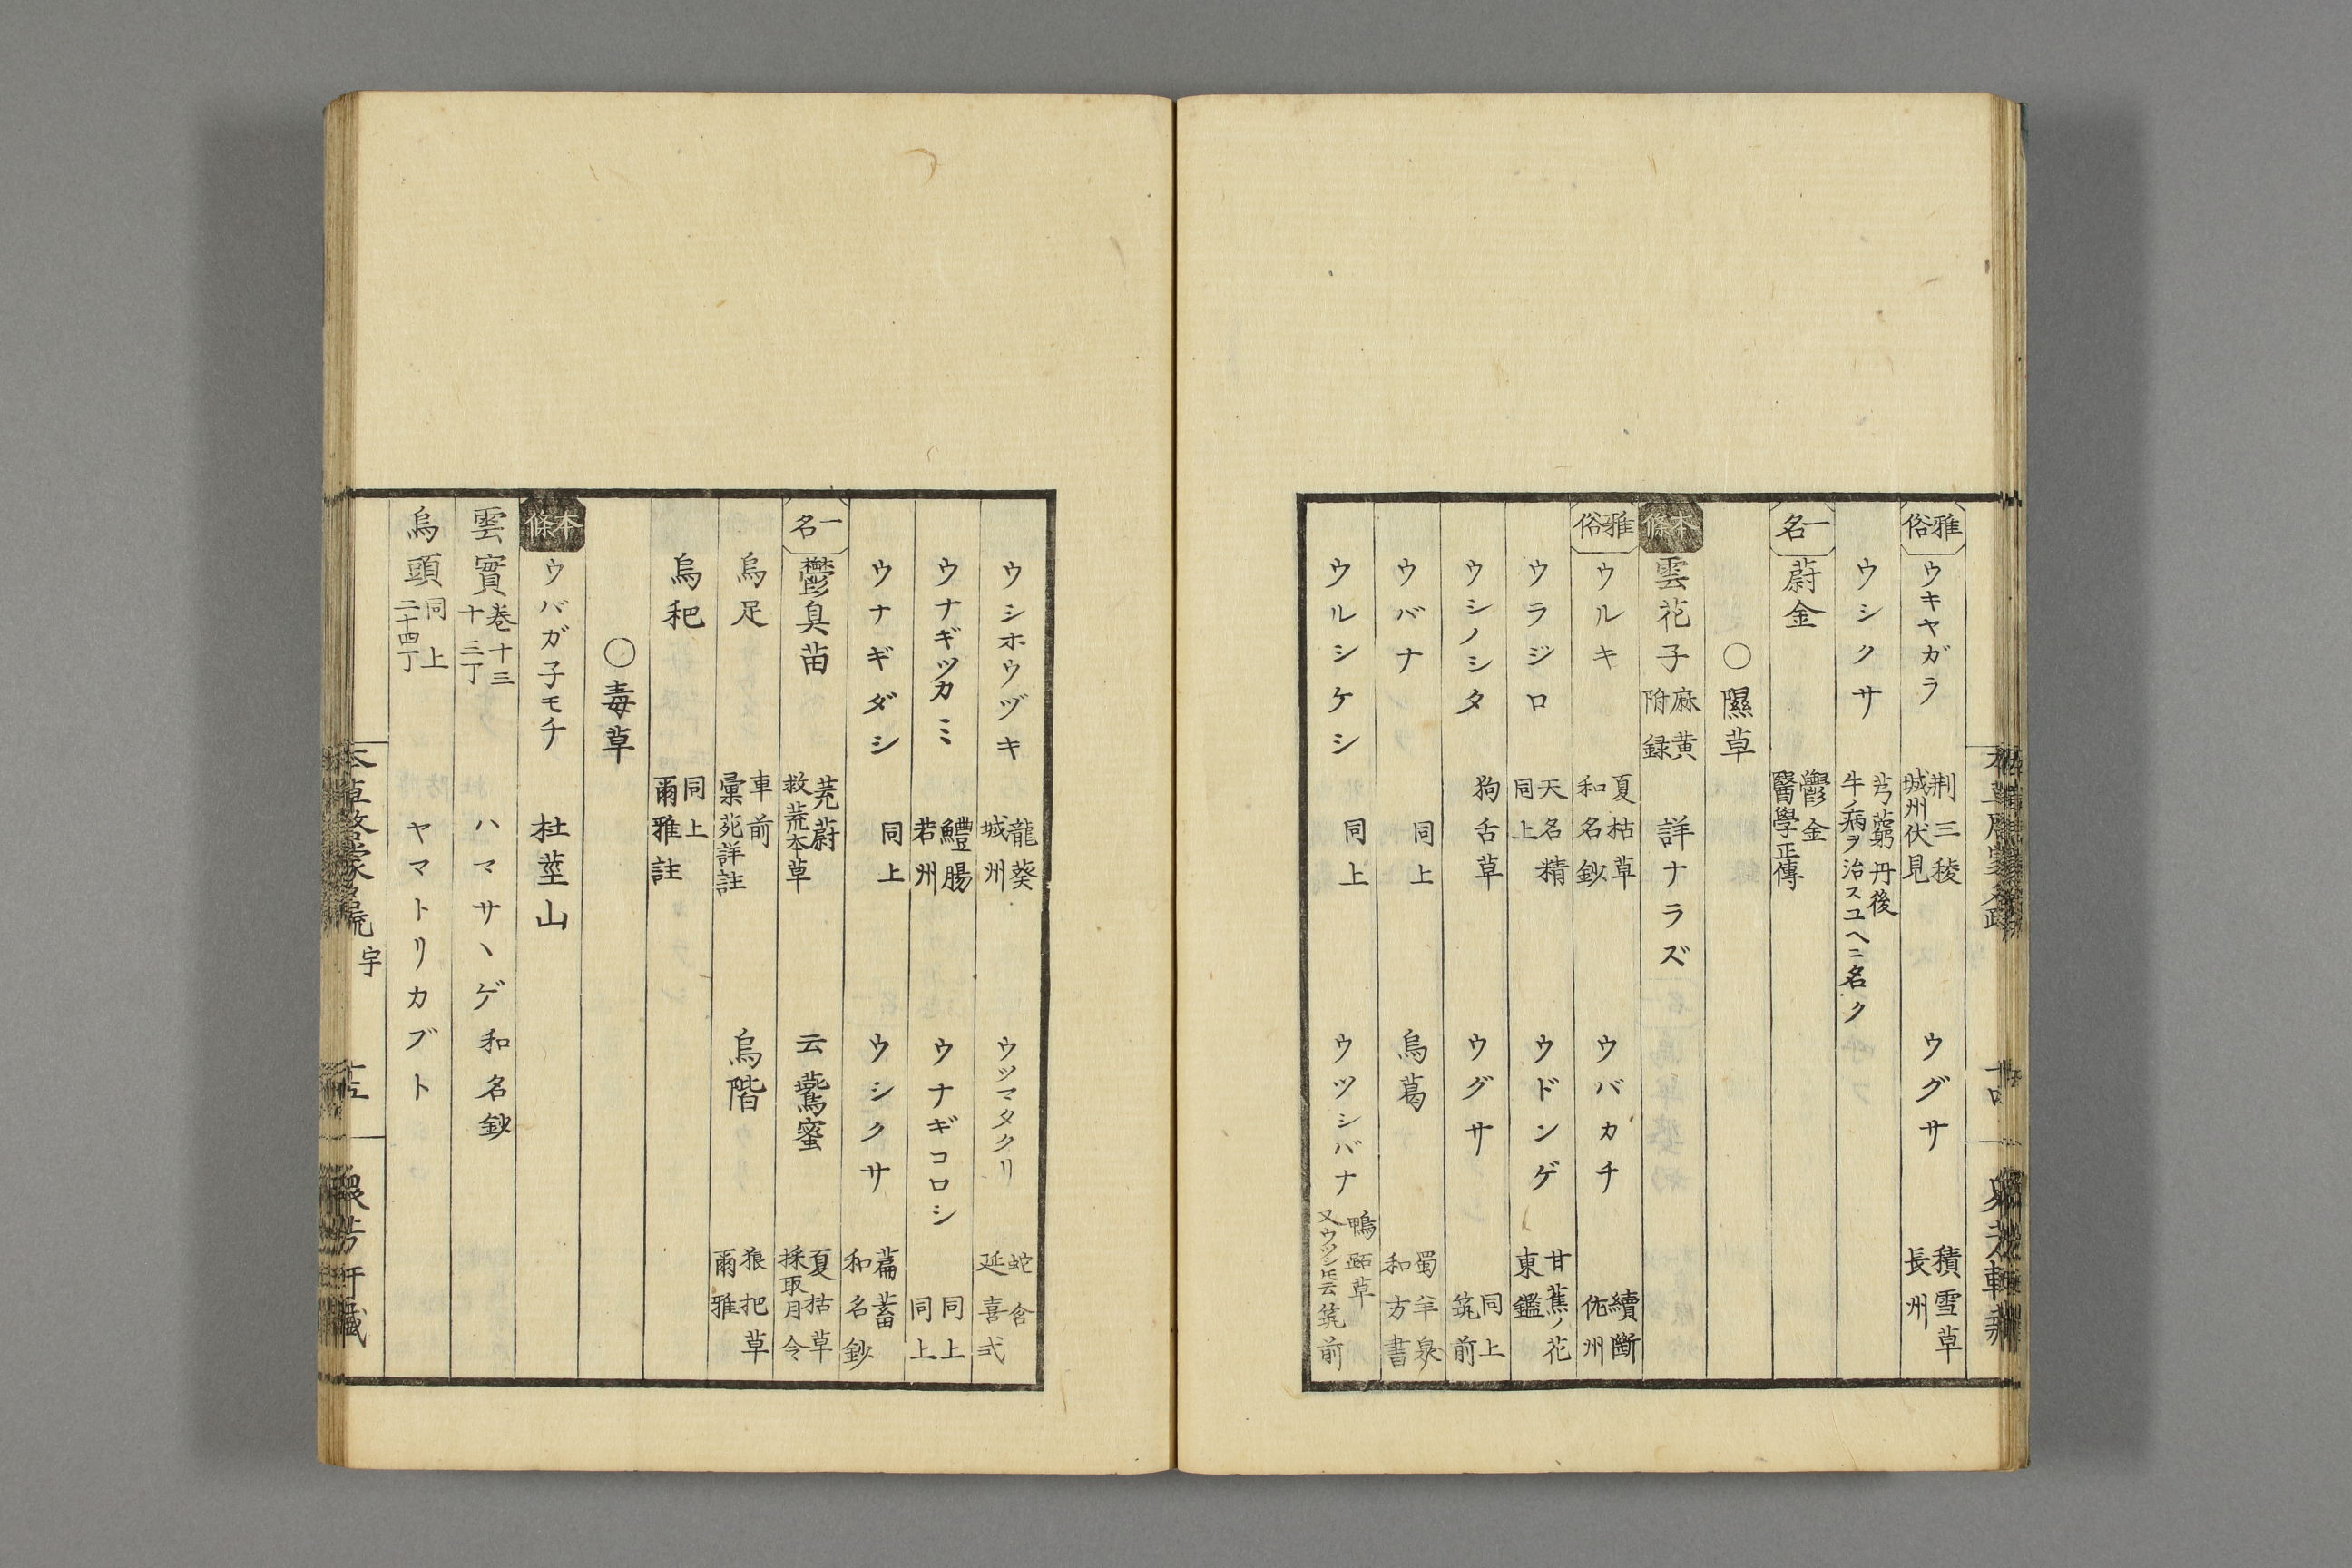 雅俗 ウキヤガラ 荆三稜 城州伏見 ウグサ 積雪草 長州
ウシクサ 芎藭 丹後 牛ノ病ヲ治スユヘニ名ク
一名 蔚金 鬱金 醫學正傳
〇隰草
本條 雲花子 麻黄附録 詳ナラズ
雅俗 ウルキ 夏枯草 和名鈔 ウバカチ 續斷 佐州
ウラジロ 天名精 同上 ウドンゲ 甘蕉ノ花 東鑑
ウシノシタ 狗舌草 ウグサ 同上 筑前
ウバナ 同上 烏葛 蜀羊泉 和方書
ウルシケシ 同上 ウツシバナ 鴨跖草 又ウツシ𪜈云 筑前
ウシホウヅキ 龍葵 城州 ウツマタクリ 蛇含 延喜式
ウナギツカミ 鱧腸 若州 ウナギコロシ 同上 同上
ウナギダシ 同上 ウシクサ 萹蓄 和名鈔
一名 鬱臭苗 茺蔚 救荒本草 云鷰蜜 夏枯草 採取月令
烏足 車前 彙苑詳註 烏階 狼把草 爾雅
烏䄫 同上 爾雅註
〇毒草
本條 ウバガ子モチ 杜莖山
雲實 卷十三 十三丁 ハマサヽゲ 和名鈔
烏頭 同上 二十四丁 ヤマトリカブト
本草啓蒙名䟽 宇 十五 衆芳軒藏